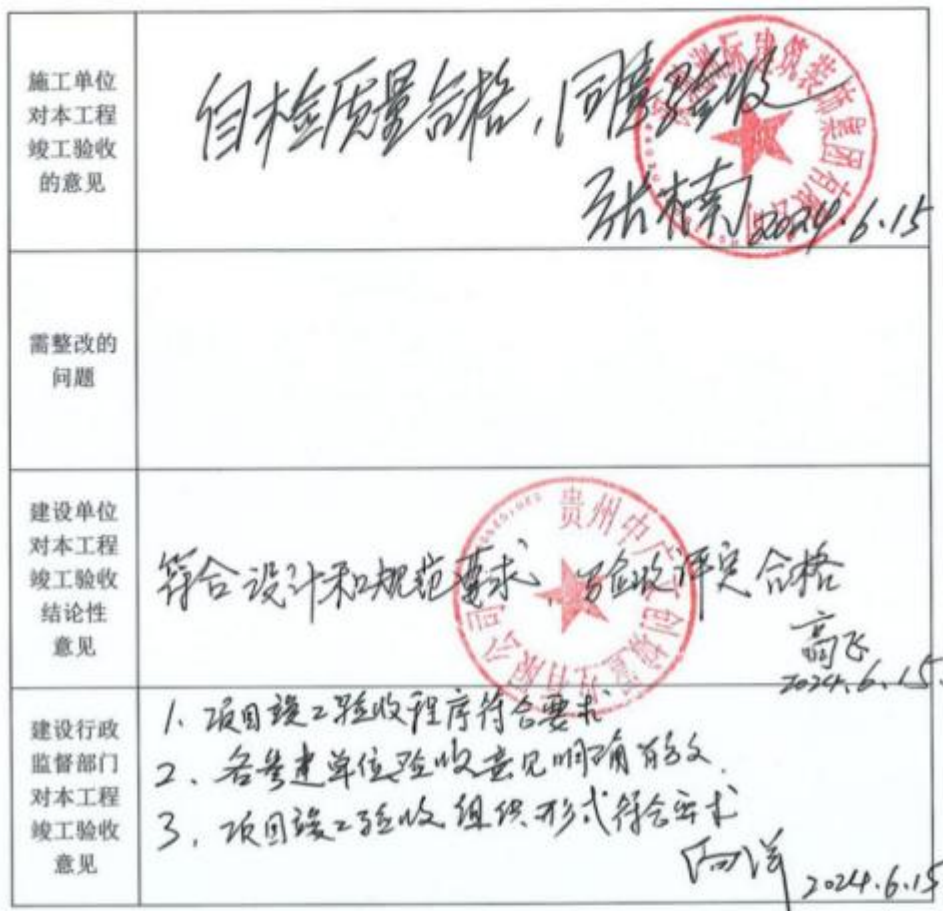 施工单位
对本工程
竣工验收
的意见
自检质量合格，同意验收
张楠 2024.6.15
建筑装饰集团有限公司
需整改的
问题
建设单位
对本工程
竣工验收
结论性
意见
符合设计和规范要求，验收评定合格
高飞
2024.6.15.
贵州中产 创 有限公司
建设行政
监督部门
对本工程
竣工验收
意见
1、项目竣工验收程序符合要求
2、各参建单位验收意见明确有效.
3、项目竣工验收组织形式符合要求
2024.6.15